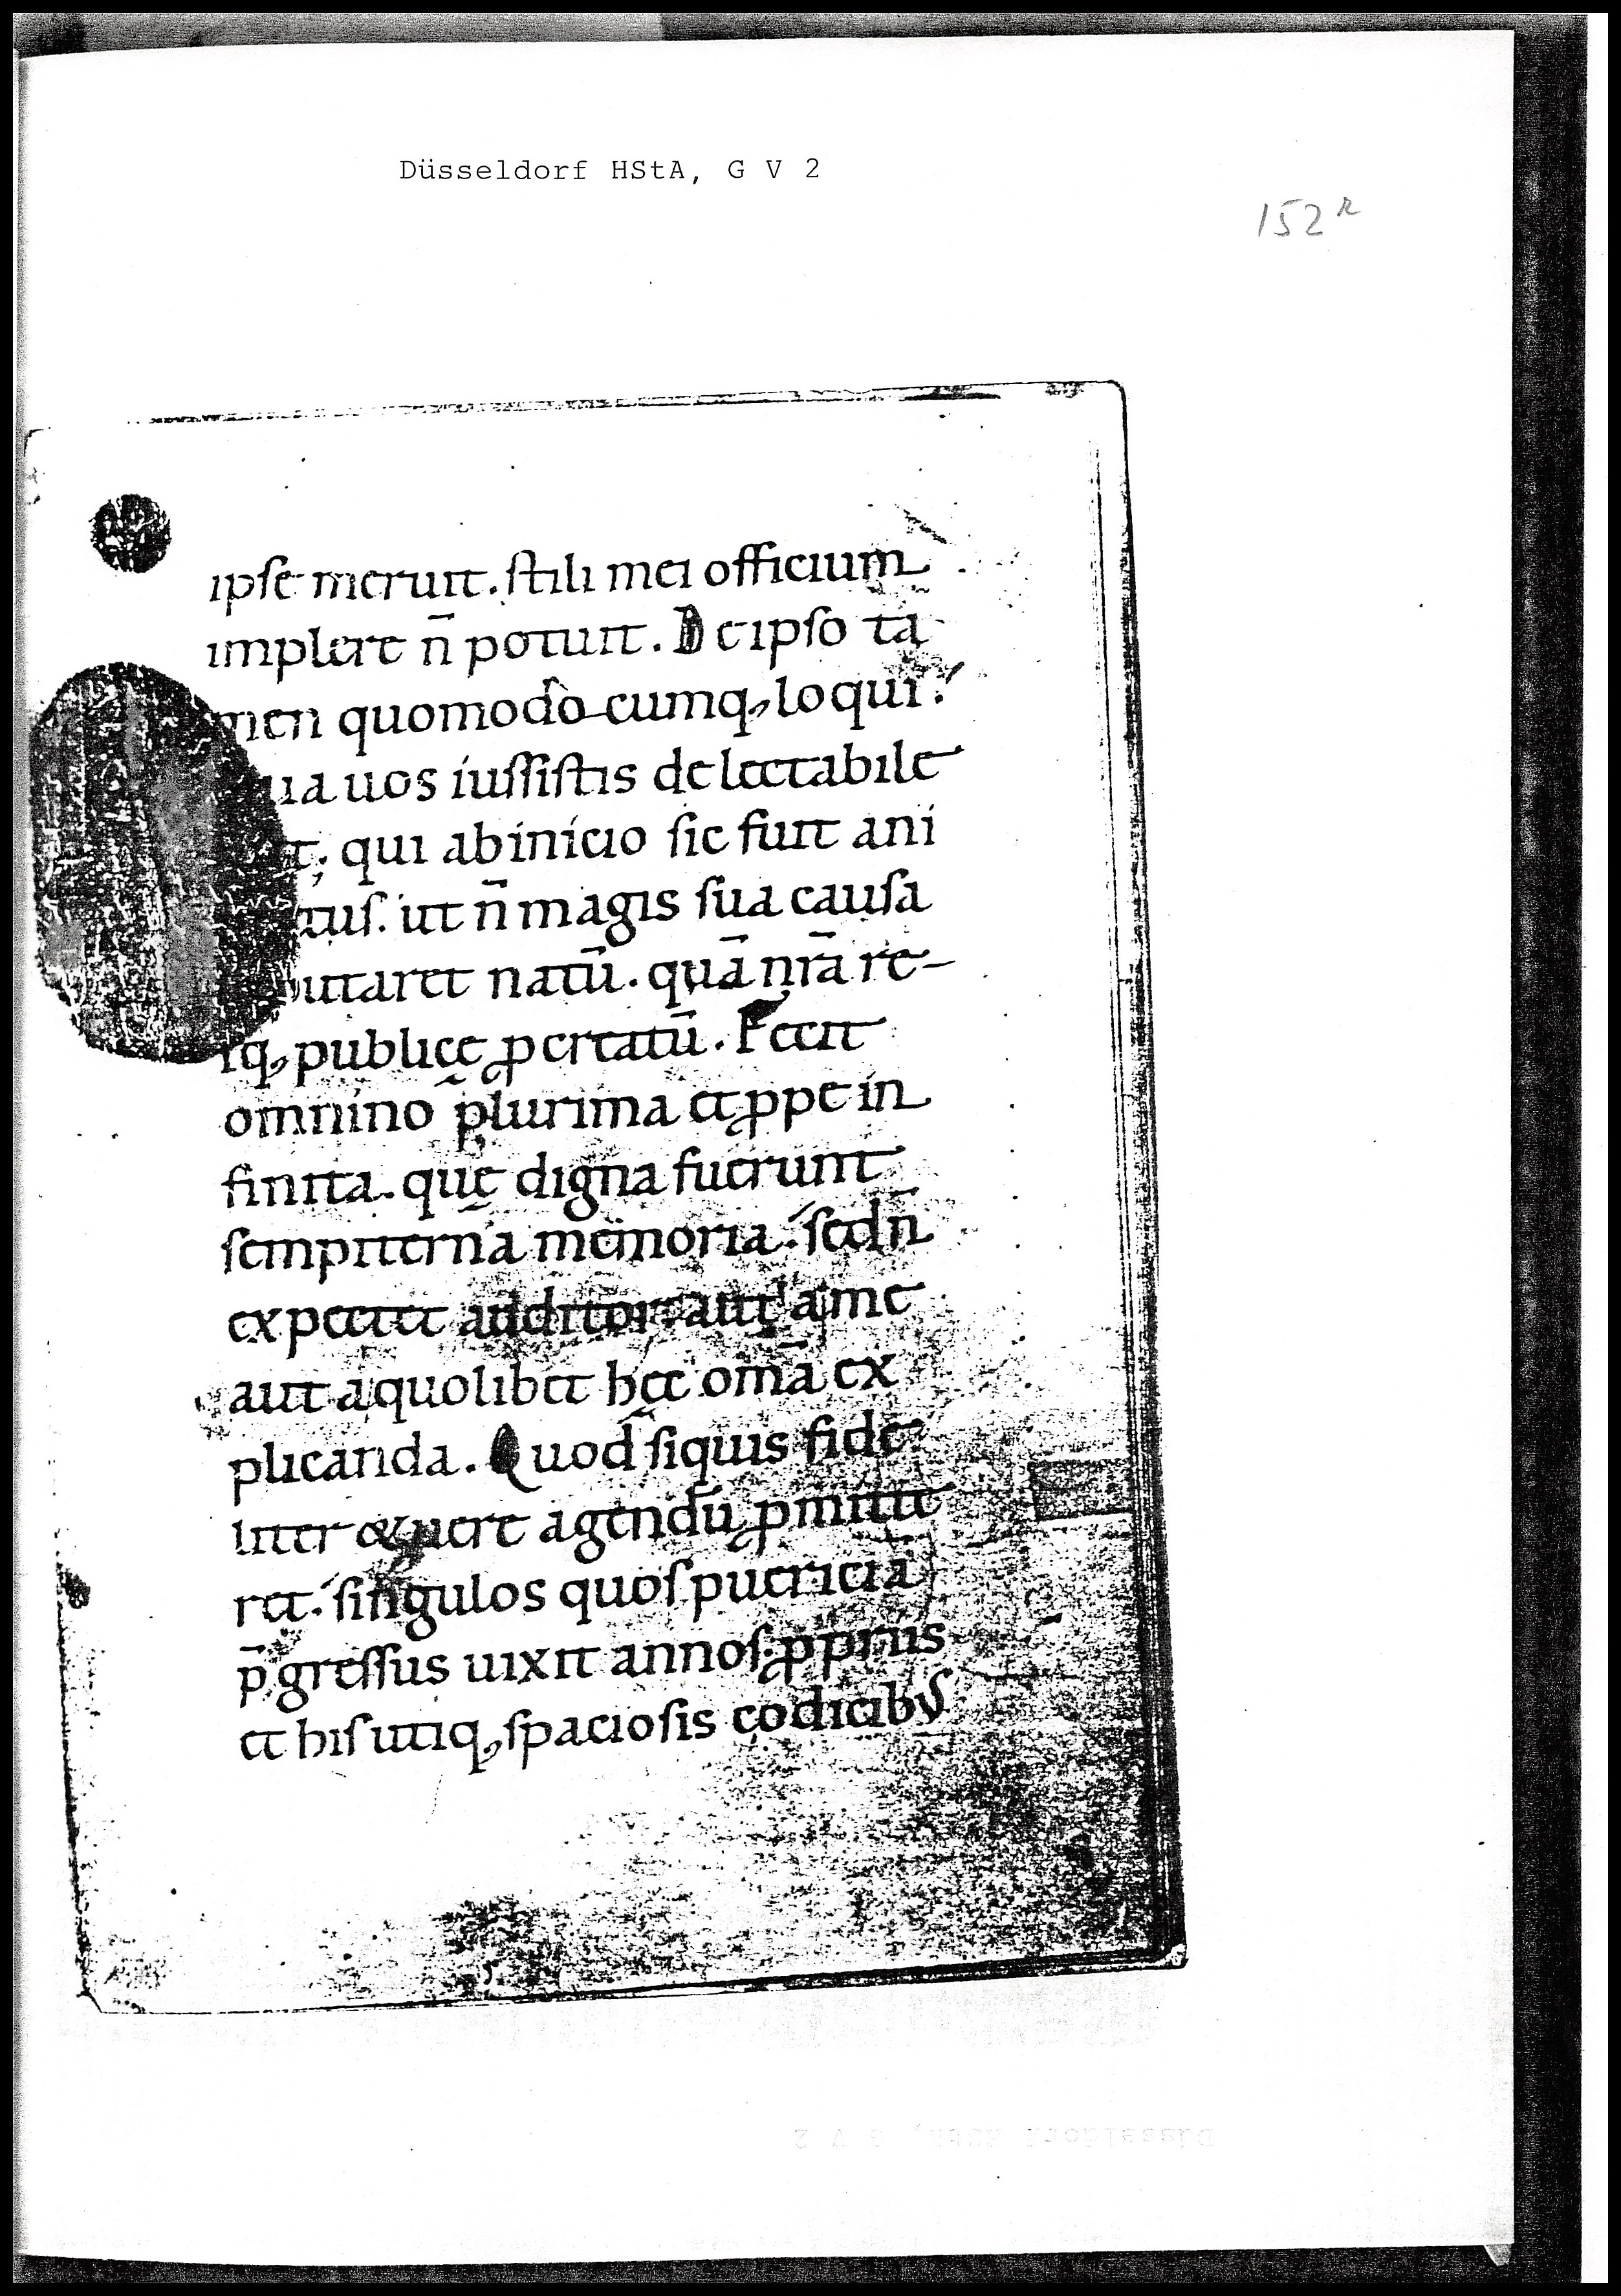 Düsseldorf HStA, G V 2
152r
ipſe meruit. ſtili mei officium
implere n̄ potuit. De ipſo ta
men quomodo cumq, loqui?
ua uos iuſſiſtis delectabile
t; qui ab inicio ſic fuit ani
tuſ. ut n̄ magis ſua cauſa
utaret natū. quā nr̄a re-
iq, publicę ꝓ creatū. Fecit
omnino plurima et ꝓpe in
finita. quę digna fuerunt
ſempiterna memoria. ſed n̄
expectet auditor. aut a me
aut a quolibet hęc om̄a ex
plicanda. Quod ſi quis fide
liter & uere agendū ꝓmitte
ret. ſingulos quoſ puericia
p̄greſſus uixit annoſ. ꝓpriis
et hiſ utiq, ſpacioſis codicibuſ